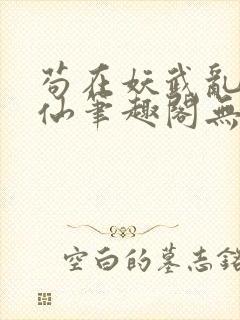 苟在妖武亂
仙筆趣閣無
空白的墓志銘